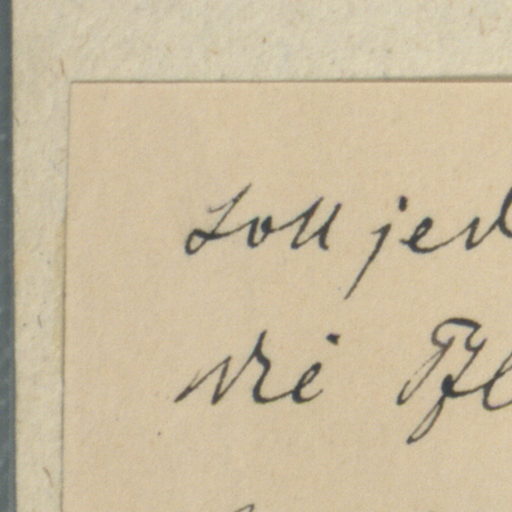 soll jed
die Pfl